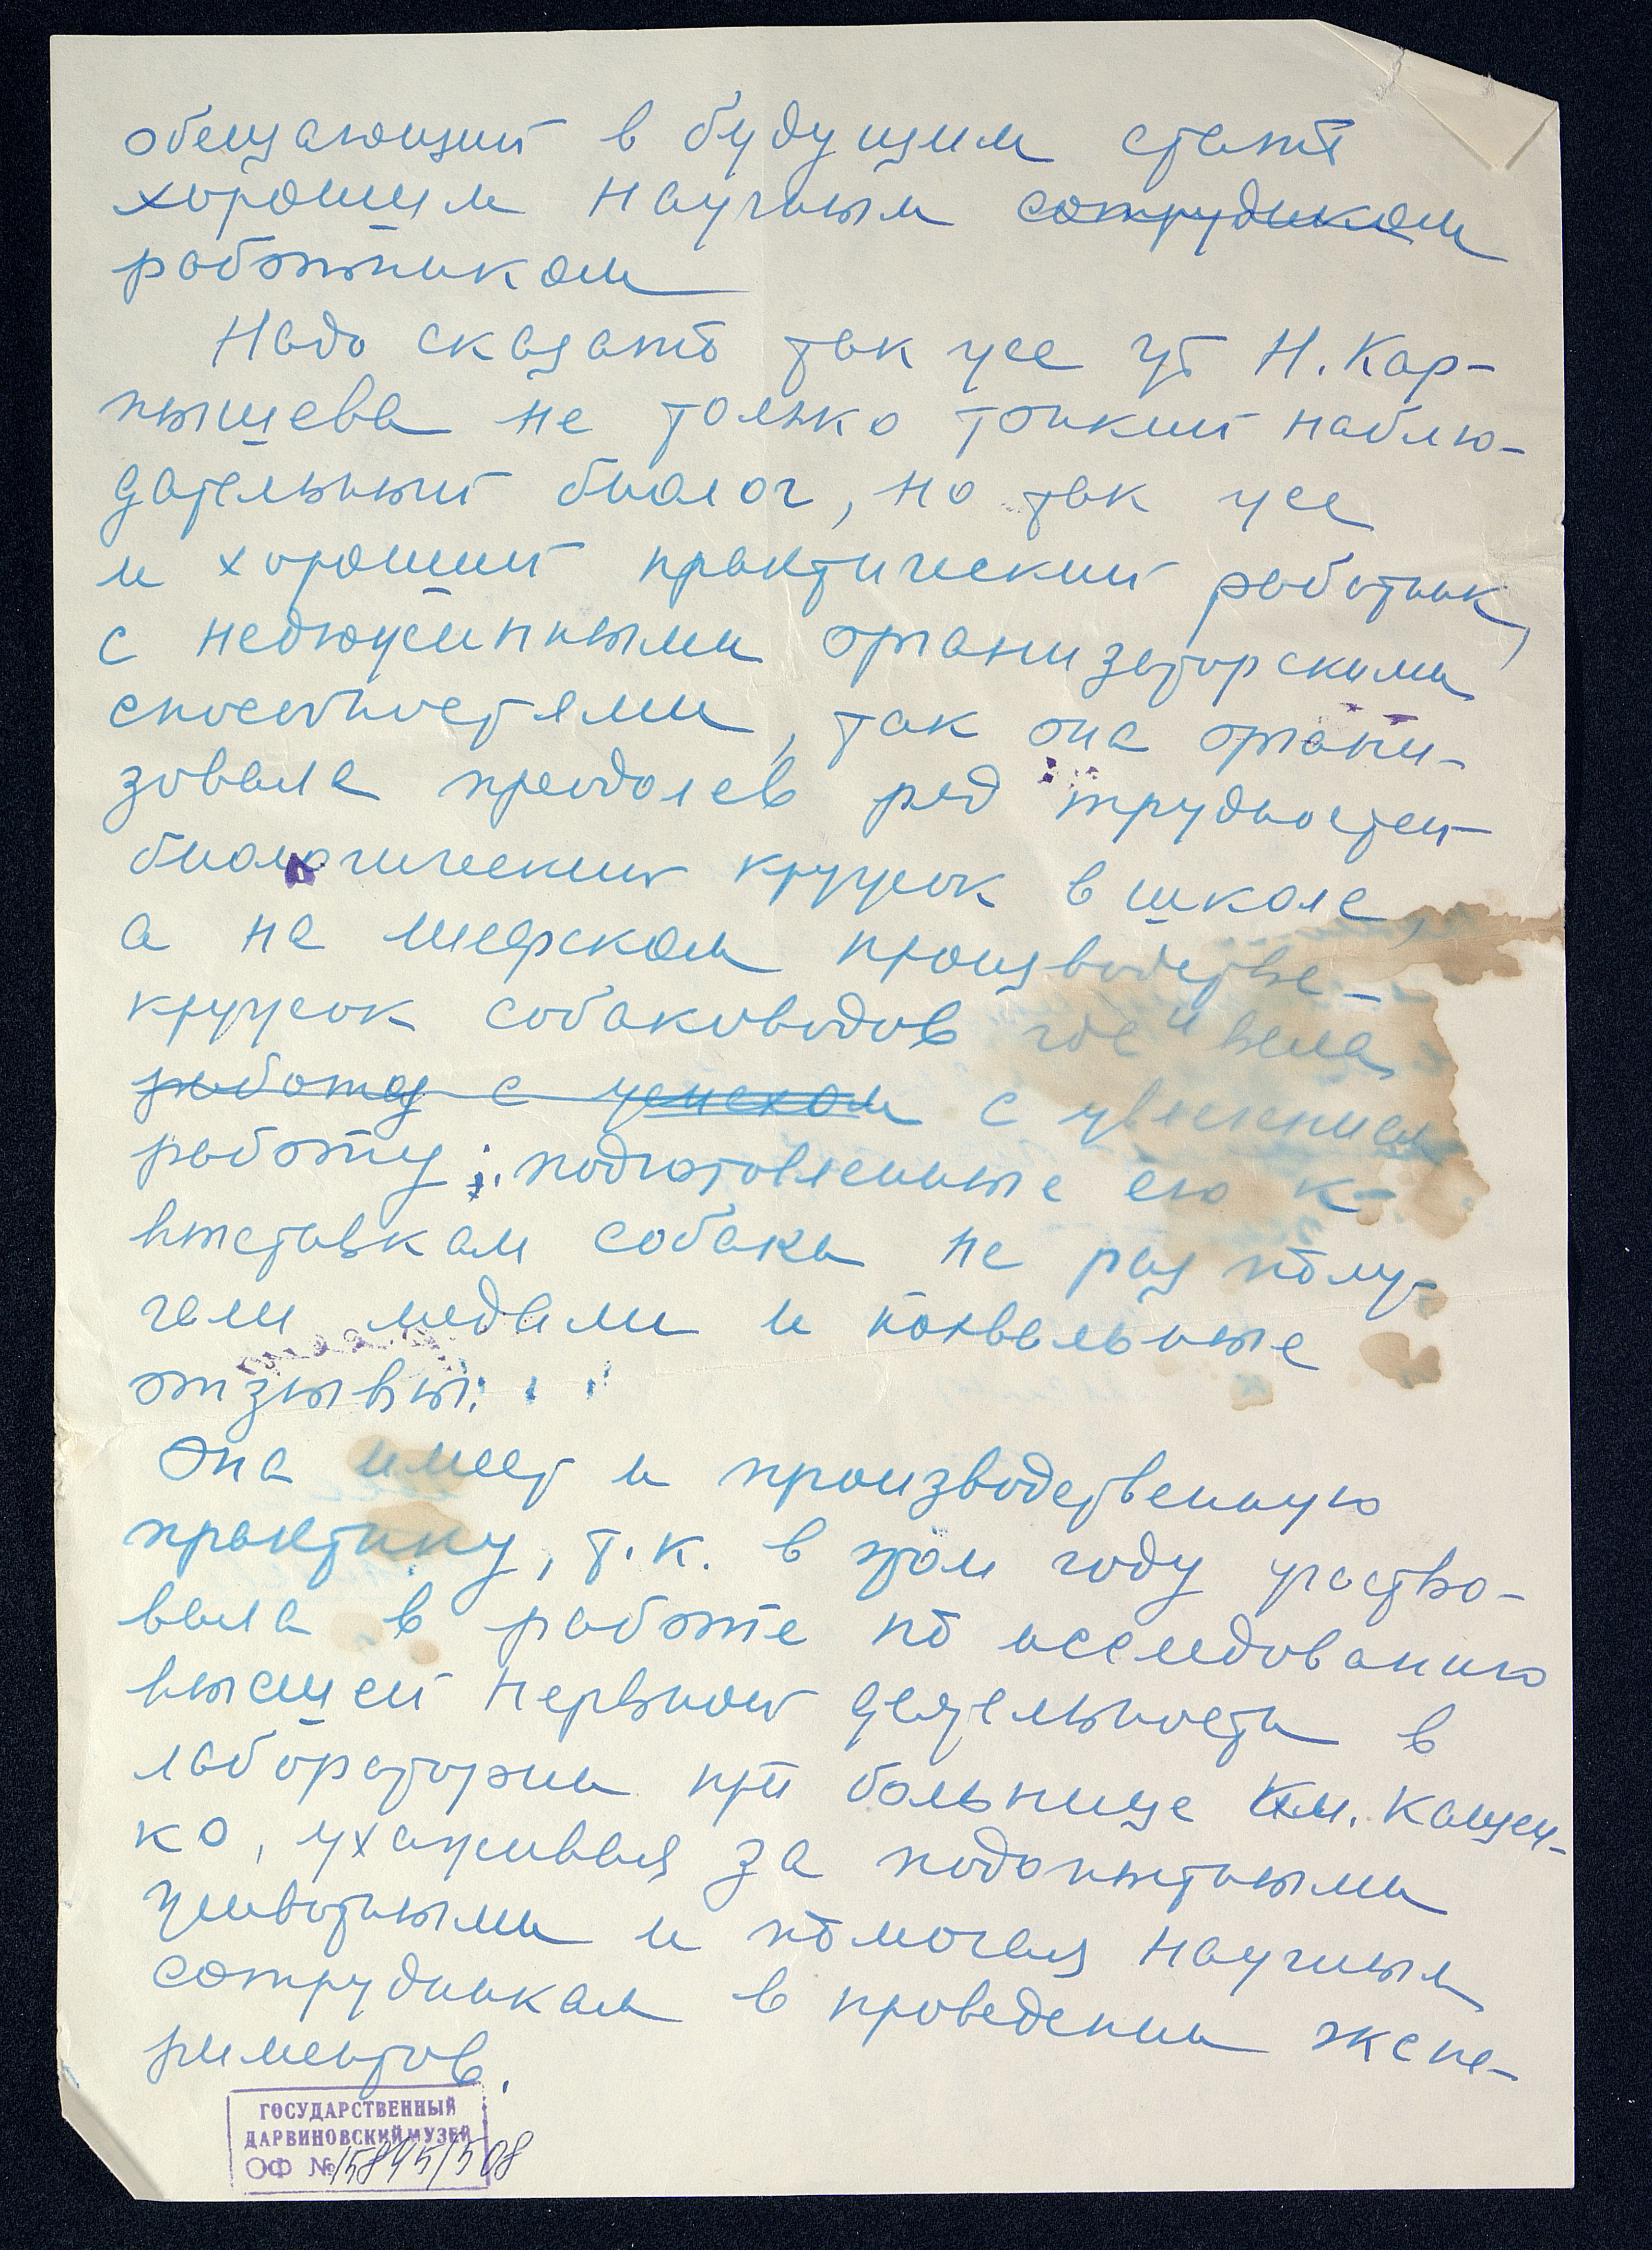 обещающий в будущим стать
хорошим научным сотрудником
работником
Надо сказать так же чт Н. Кар-
пышева не только тонкий наблю-
дательный биолог, но так же
и хороший практический работник,
с недюжинными организаторскими
способностями, так она органи-
зовала преодолев ряд трудностей
биологический кружок в школе,
а на шефском производстве-
кружок собаководов где и вела
работу с успехом с увлечением
работу; подготовленные ею к-
выставкам собаки не раз полу-
чали медали и похвальные
отзывы.
Она имеет и производственную
практику, т.к. в этом году участво-
вала в работе по исследованию
высшей нервной деятельности в
лаборатории при больнице Им. Кащен-
ко, ухаживая за подопытными
животными и помогая научным
сотрудникам в проведении экспе-
риментов.
ГОСУДАРСТВЕННЫЙ
ДАРВИНОВСКИЙ МУЗЕЙ
ОФ № 15845/508